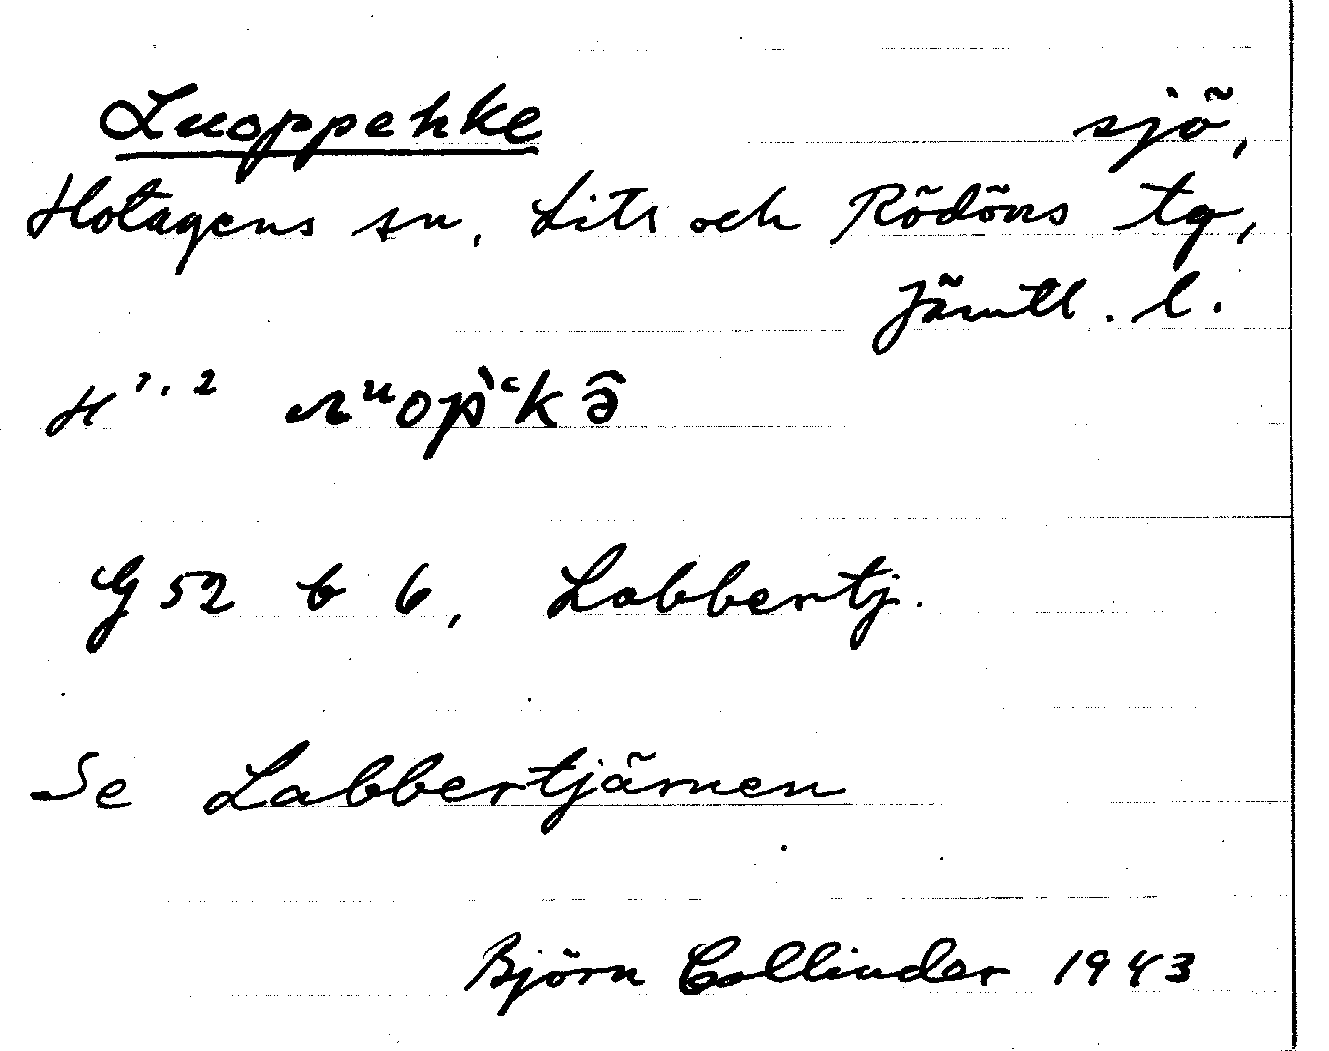 Luoppehke sjö,
Hotagens sn, Lits och Rödöns tg,
Jämtl. l.
H 1.2
G 52 b 6, Labbertj.
Se Labbertjärnen
Björn Collinder 1943